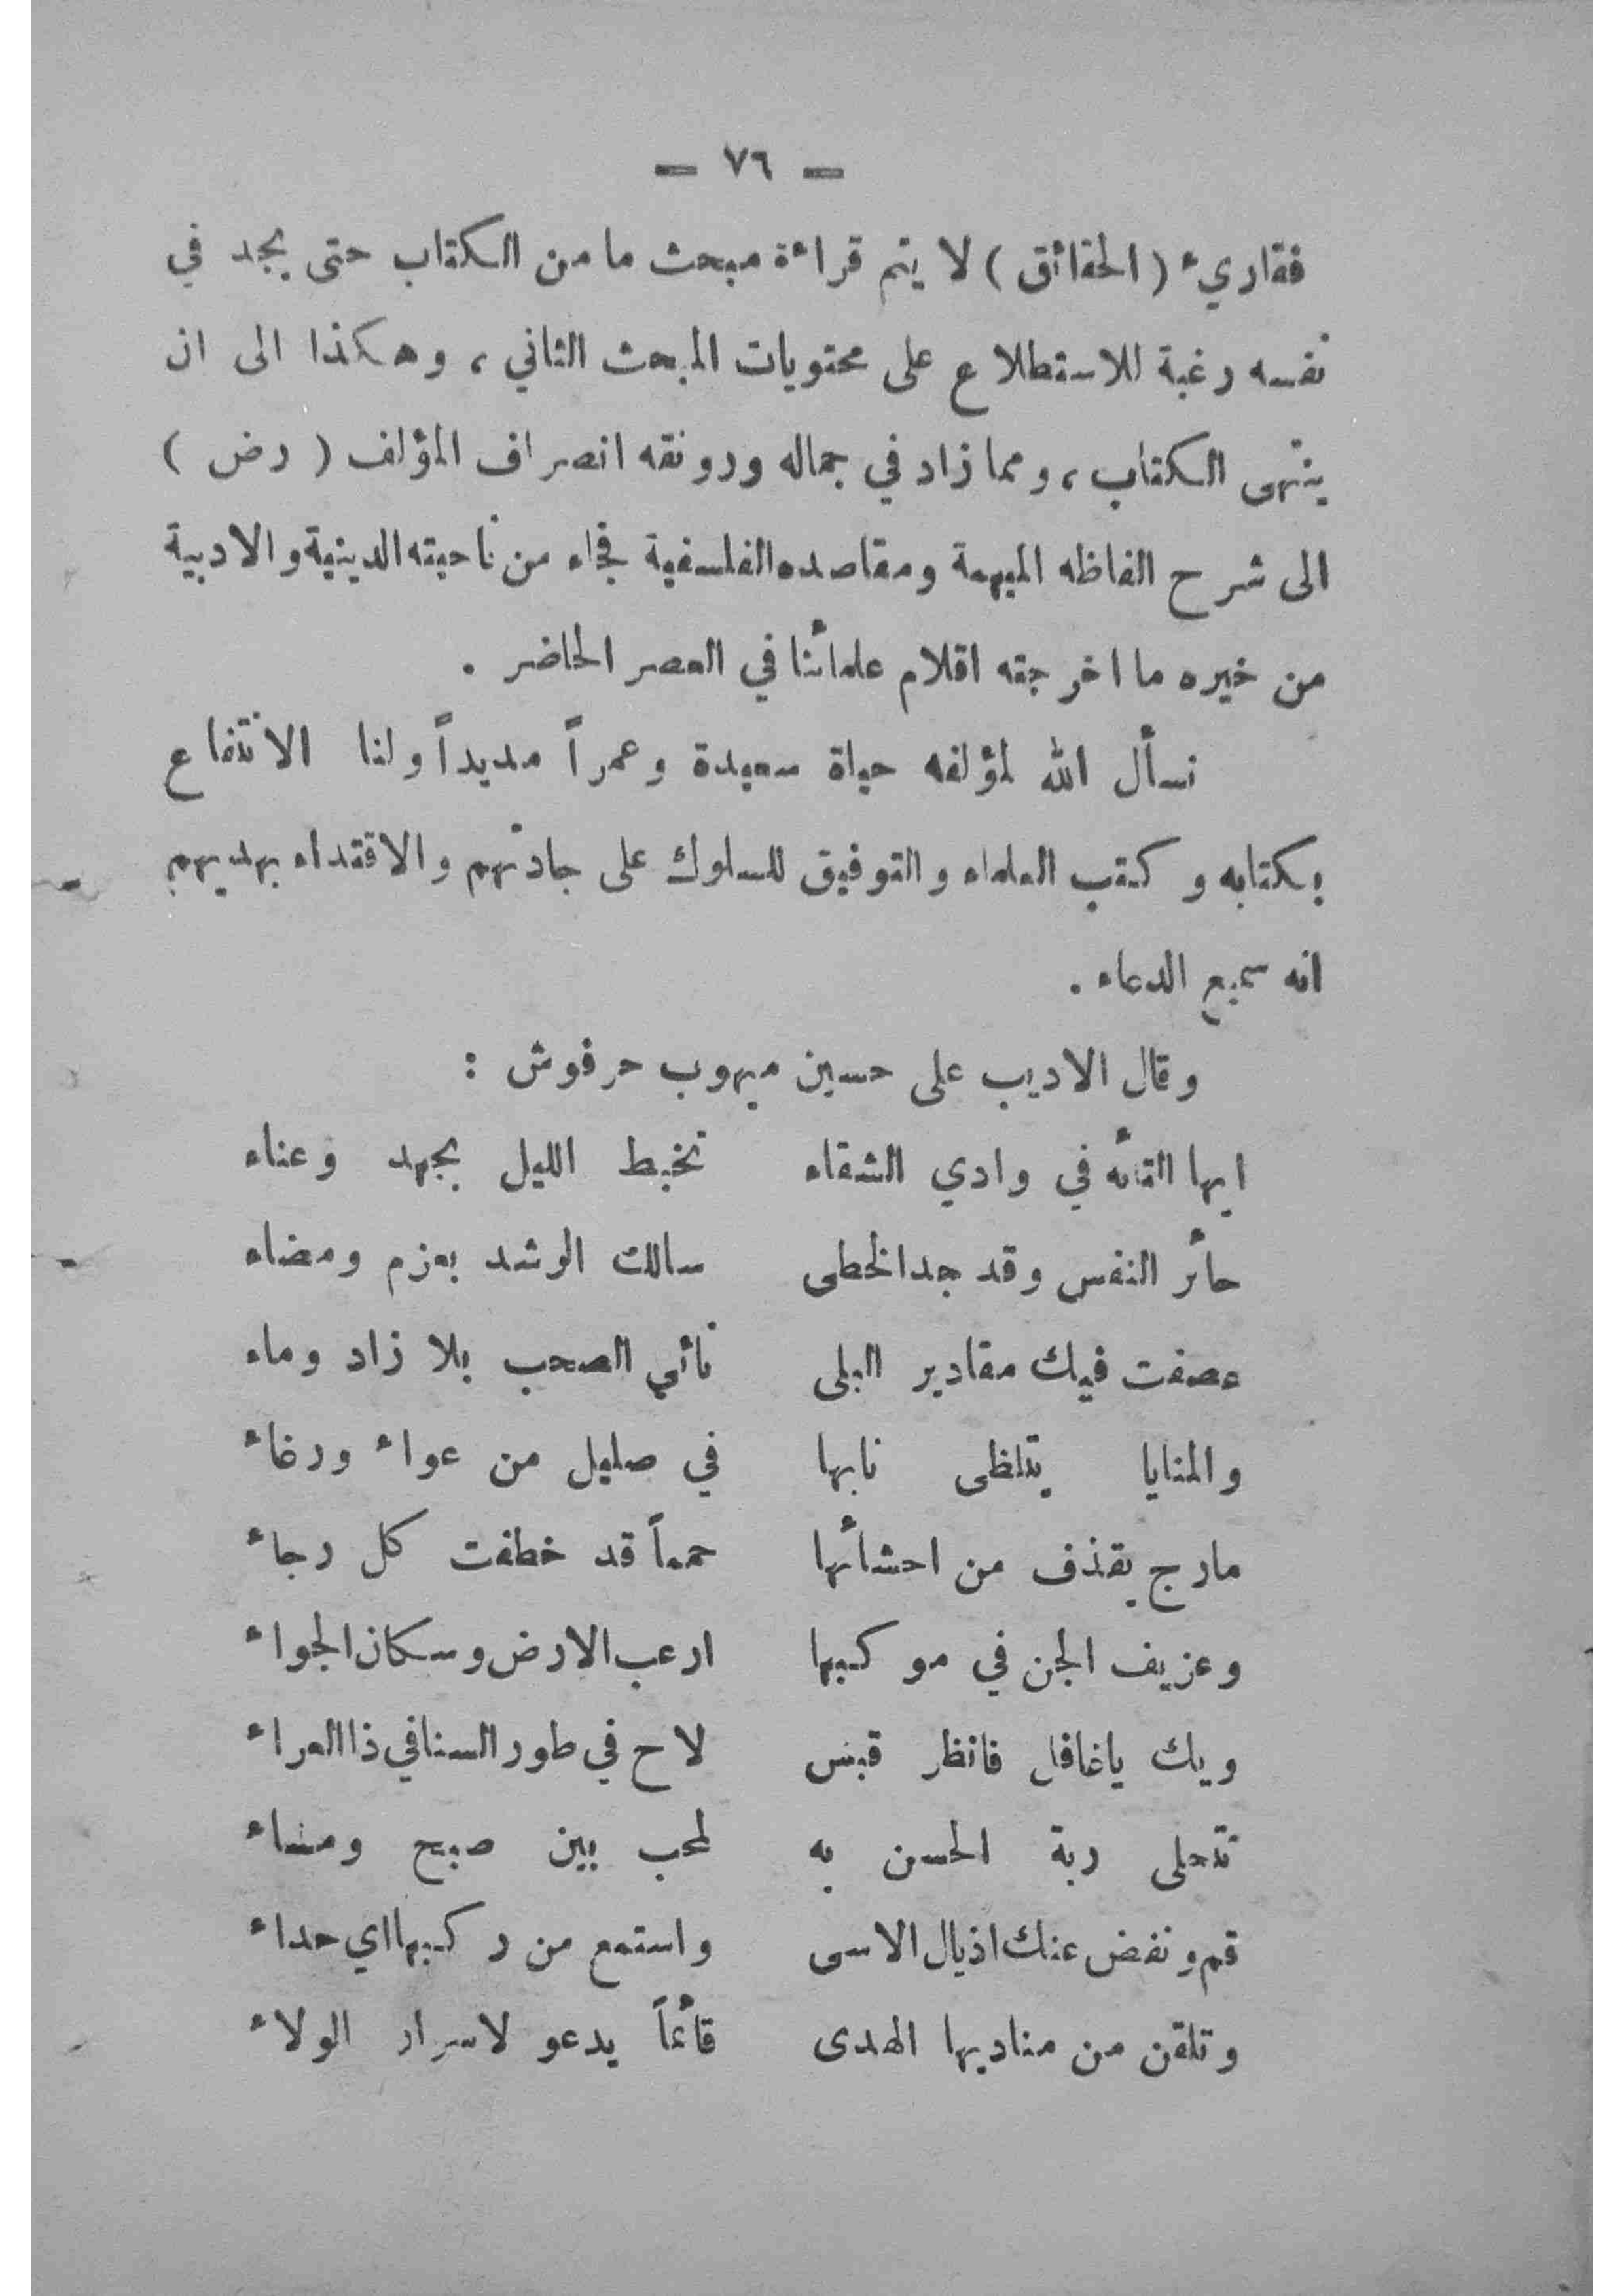 — ٧٦ —
فقاريء (الحقائق) لا يتم قراءة مبحث ما من الكتاب حتى يجد في
نفسه رغبة للاستطلاع على محتويات المبحث الثاني ، وهكذا الى ان
ينتهى الكتاب ، ومما زاد في جماله ورونقه انصراف المؤلف ( رض )
الى شرح الفاظه المبهمة ومقاصده الفلسفية فجاء من ناحيته الدينية والادبية
من خيره ما اخرجته اقلام علمائنا في العصر الحاضر .
نسأل الله لمؤلفه حياة سعيدة وعمراً مديداً ولنا الانتفاع
بكتابه وكتب العلماء والتوفيق للسلوك على جادتهم والاقتداء بهديهم
انه سميع الدعاء .
وقال الاديب على حسين ميهوب حرفوش :
ايها التائه في وادي الشقاء تخبط الليل بجهد وعناء
حائر النفس وقد جد الخطى سالك الرشد بعزم ومضاء
عصفت فيك مقادير البلى نائي الصحب بلا زاد وماء
والمنايا يتلظى نابها في صليل من عواء ورغاء
مارج يقذف من احشائها حمماً قد خطفت كل رجاء
وعزيف الجن في موكبها ارعب الارض وسكان الجواء
ويك ياغافل فانظر قبس لاح في طور السنا في ذا العراء
تتحلى ربة الحسن به لمحب بين صبح ومساء
قم ونفض عنك اذيال الاسى واستمع من ركبها اي حداء
وتلقن من مناديها الهدى قائماً يدعو لاسرار الولاء